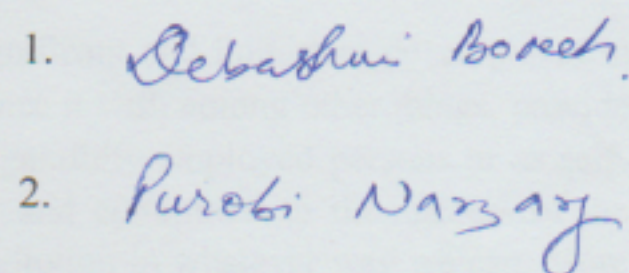 1. Debashmi Borah.
2. Purobi Narzary